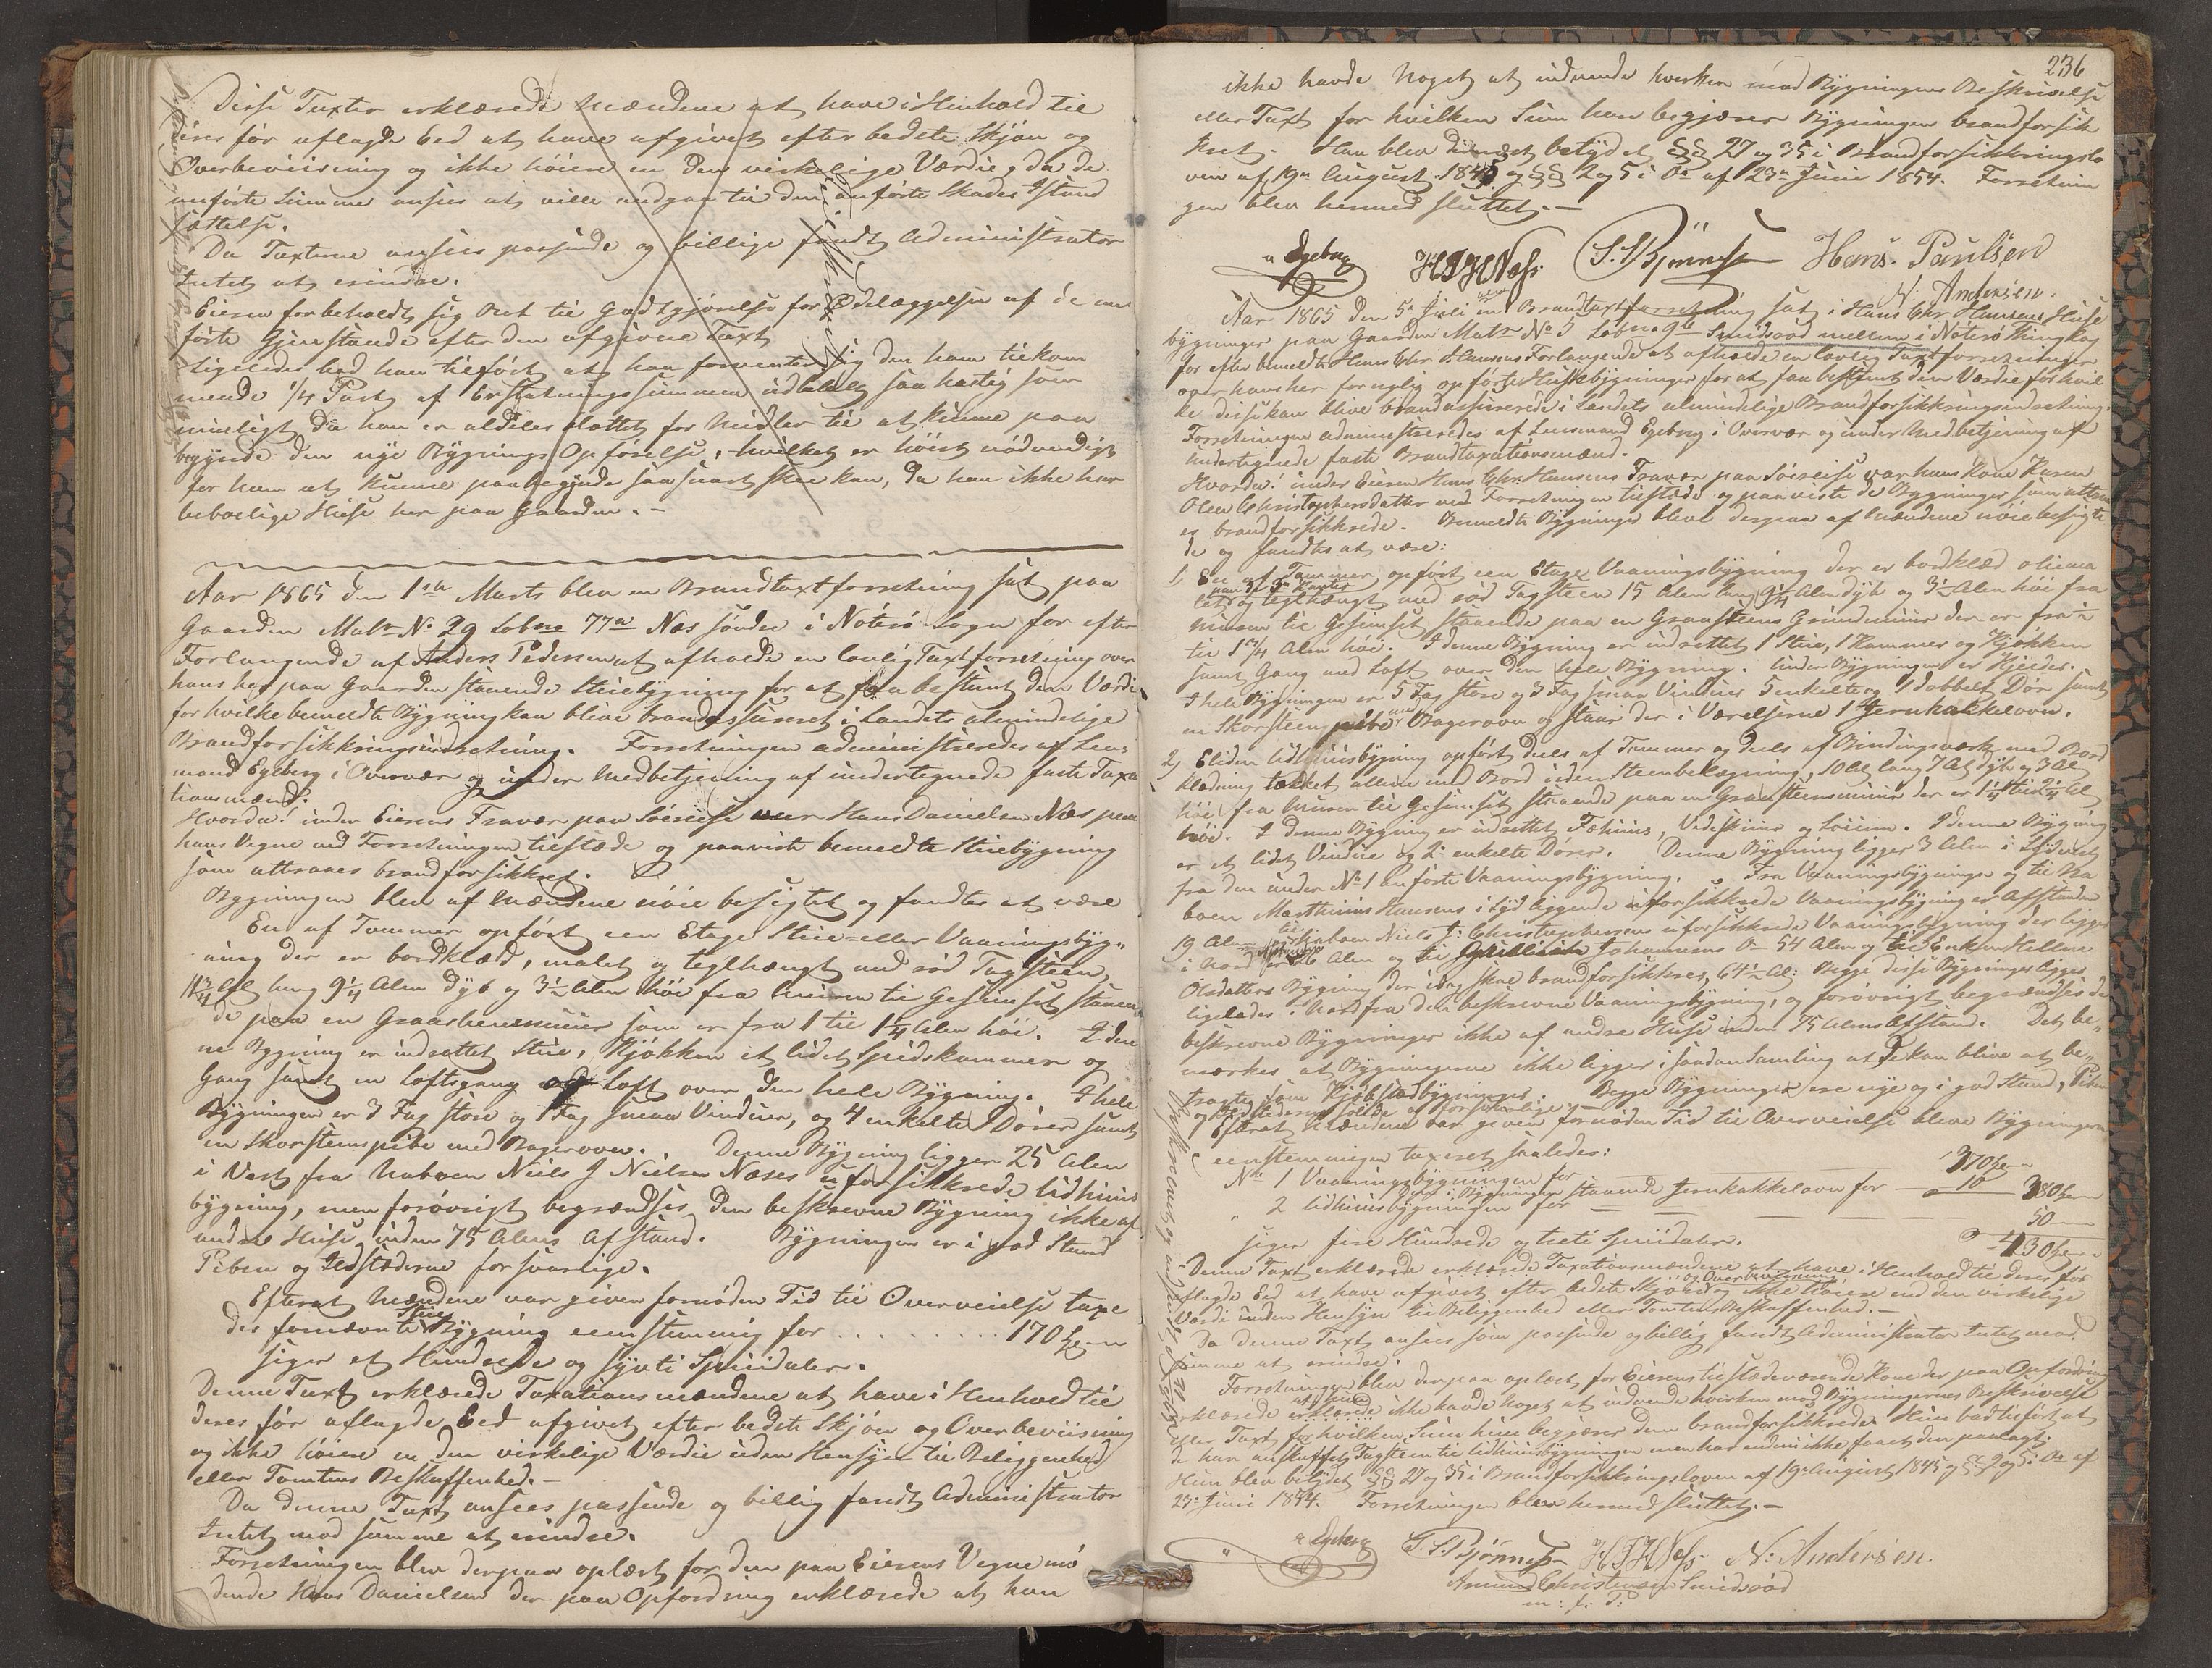 Disse Taxter erklærede Mændene at have i Henhold til
før aflagde Eed at have afgivet efter bedste Skjøn og
Overbeviisning og ikke høiere en den virkelige Værdie, da de
anførte Summe ansees at ville medgaa til den anførte Skades Istand
sættelse.
Da Taxterne ansees passende og billige fandt Administrator
Intet at erindre.
Eieren forbeholdt sig Ret til Godtgjørelse for Ødelæggelsen af de an
førte Gjenstande efter den afgivne Taxt
Ligeledes bad han tilført at han forventer sig den ham tilkom
mende 1/4 Part af Erstatningssummen udbetalt saa hastig som
mueligt da han er aldeles blottet for Midler til at kunne paa
begynde den nye Bygnings Opførelse, hvilket er høist nødvendigt
for ham at kunne paabegynde saa snart skee kan, da han ikke har
beboelige Huse her paa Gaarden. -
Aar 1865 den 1ste Marts blev en Brandtaxtforretning sat paa
Gaarden Matr No 29 Løbne 77a Næs søndre i Nøterø Sogn for efter
Forlangende af Anders Pedersen at afholde en lovlig Taxtforretning over
hans her paa Gaarden staaende Stuebygning for at faa bestemt den Værdi
for hvilke bemeldte Bygning kan blive brandassureret i Landets almindelige
Brandforsikkringsindretning. Forretningen administreredes af Lens
mand Egeberg i Overvær og under Medbetjening af undertegnede faste Taxa
tionsmænd.
Hvorda! under Eierens Fravær paa Søereise var Hans Danielsen Næs paa
hans Vegne ved Forretningen tilstede og paaviste bemeldte Stuebygning
som attraaes brandforsikkret.
Bygningen blev af Mændene nøie besigtet og fandtes at være
En af Tømmer opført een Etage Stue- eller Vaaningsbyg-
ning der er bordklæd, malet og teglhængt med rød Tagsteen,
11 3/4 Al lang 9 1/4 Alen dyb og 3 1/2 Alen høi fra Muren til Gesimset staaen
de paa en Graasteensmuur som er fra 1 til 1 1/4 Alen høi. I den
ne Bygning er indrettet Stue, Kjøkken et lidet Spidskammer og
Gang samt en Loftsgang og Loft over den hele Bygning. I hele
Bygningen er 3 Fag store og 1 Fag smaa Vinduer, og 4 enkelte Dører samt
en Skorsteenspibe med Bagerovn. Denne Bygning ligger 25 Alen
i Vest fra Naboen Niels J Nielsen Næses uforsikkrede Udhuus
bygning, men forøvrigt begrændses den beskrevne Bygning ikke af
andre Huse inden 75 Alens Afstand. Bygningen er i god Stand
Piben og Ildstederne forsvarlige.
Efterat Mændene var given fornøden Tid til Overveielse taxe
des fornævnte Stue Bygning eenstemmig for . . . . . . . . . 170
siger et Hundrede og syvti Speciedaler.
Denne Taxt erklærede Taxationsmændene at have i Henhold til
deres før aflagde Eed afgivet efter bedste Skjøn og Overbeviisning
og ikke høiere en den virkelige Værdie uden Hensyn til Beliggenhed
eller Tomtens Beskaffenhed. -
Da denne Taxt ansees passende og billig fandt Administrator
Intet mod samme at erindre.
Forretningen blev derpaa oplæst for den paa Eierens Vegne mø
dende Hans Danielsen der paa Opfordring erklærede at han
236
ikke havde Noget at indvende hverken mod Bygningens Beskrivelse
eller Taxt for hvilken Sum han begjærer Bygningen brandforsik
kret. Han blev dernæst betydet §§ 27 og 35 i Brandforsikkringslo
ven af 19de August 1845 og §§ 2 og 5 i Do af 23de Juni 1854. Forretnin
gen blev hermed sluttet. -
Egeberg HJHNæss S. S. Bjønnes Hans Paulsen
N: Andersen.
Aar 1865 den 5te Juli blev en Brandtaxtforretning sat i Hans Chr Hansens Huse
bygninger paa Gaarden Matr No Løbne 9b Smidsrød mellem i Nøterø Thinglag
for efter bemeldte Hans Chr Hansens Forlangende at afholde en lovlig Taxtforretninger
over hans her for nylig opførte Husebygninger for at faa bestemt den Værdie for hvil
ke disse kan blive brandassurerede i Landets almindelige Brandforsikkringsindretning.
Forretningen administreredes af Lensmand Egeberg i Overvær og under Medbetjening af
undertegnede faste Brandtaxationsmænd.
Hvorda! under Eieren Hans Chr. Hansens Fravær paa Søereise var hans Kone Karen
Olea Christophersdatter ved Forretningen tilstæde og paaviste de Bygninger som attraa
es brandforsikkrede. Bemeldte Bygninger blev derpaa af Mændene nøie besigte
de og fandtes at være:
1, En af Tømmer opført een Etage Vaaningsbygning der er bordklæd oliema
let paa 3de Kanter og teglhængt med rød Tagsteen 15 Alen lang 9 1/4 Alen dyb og 3 1/2 Alen høi fra
Muren til Gesimset staaende paa en Graasteens Grundmuur der er fra 1/2
til 1 3/4 Alen høi. I denne Bygning er indrettet 1 Stue, 1 Kammer og Kjøkken
samt Gang med Loft over den hele Bygning. Under Bygningen er Kjelder.
I hele Bygningen er 5 Fag store og 3 Fag smaa Vinduer 5 enkelte og 1 dobbelt Dør samt
en Skorsteenspibe med Bagerovn og staar der i Værelserne 1 Jernkakkelovn.
2, Eliden Udhuusbygning opført deels af Tømmer og deels af Bindingsværk med Bord
klædning tækket allene med Bord uden Steenbelægning, 10 Al lang 7 Al dyb og 3 Al
høi fra Muren til Gesimset staaende paa en Graasteensmuur der er 1 1/4 til 2 1/4 Al
høi. I denne Bygning er indrettet Fæhuus, Vedeskuur og Løerum. I denne Bygning
er et lidet Vindue og 2 enkelte Dører. Denne Bygning ligger 3 Alen i Sydvest
fra den under No 1 anførte Vaaningsbygning. Fra Vaaningsbygningen og til Na
boen Marthinus Hansens i Syd liggende uforsikkrede Vaaningsbygning er Afstanden
19 Alen til Naboen Niels J: Christophersens uforsikkrede Vaaningsbygning der ligger
i Nord 26 Alen og til Johannesens Do 54 Alen og til Enken Hellene
Olsdatters Bygning der idag skal brandforsikkres, 64 1/2 Al: Begge disse Bygninger ligger
ligeledes i Nord fra den beskrevne Vaaningsbygning, og forøvrigt begrændses de
beskrevne Bygninger ikke af andre Huse inden 75 Alens Afstand. Det be-
mærkes at Bygningerne ikke ligger i saadan Samling at de kan blive at be-
tragte som Kjøbstadbygninger. Begge Bygninger ere nye og i god Stand, Piben
og Ildstederne solide og forsvarlige. -
Efterat Mændene var given fornøden Tid til Overveielse bleve Bygningerne
eenstemmigen taxeret saaledes:
No 1 Vaaningsbygningen for 370
den i Bygningen staaende Jernkakkelovn for 10 380
" 2 Udhuusbygningen for — — 50
siger fire Hundrede og treti Speciedaler. 430
Denne Taxt erklærede Taxationsmændene at have i Henhold til deres før
aflagde Eed at have afgivet efter bedste Skjøn og Overbeviisning og ikke høiere end den virkelige
Værdi uden Hensyn til Beliggenhed eller Tomtens Beskaffenhed. -
Da denne Taxt ansees som passende og billig fandt Administrator Intet mod
samme at erindre.
Forretningen blev derpaa oplæst for Eierens tilstædeværende Kone der paa Opfordring
erklærede at hun ikke havde Noget at indvende hverken mod Bygningernes Beskrivelse
eller Taxt for hvilken Sum hun begjærer dem brandforsikkrede. Hun bad tilført at
de har anskaffet Tagsteen til Udhuusbygningen men har endnu ikke faaet den paalagt.
Hun blev betydet §§ 27 og 35 i Brandforsikkringsloven af 19de August 1845 og §§ 2 og 5 i Do af
23de Juni 1854. Forretningen blev hermed sluttet. -
Egeberg S. S. Bjønnes HJHNæss N: Andersen.
Amund Christensen Smidsrød
m: f: P: